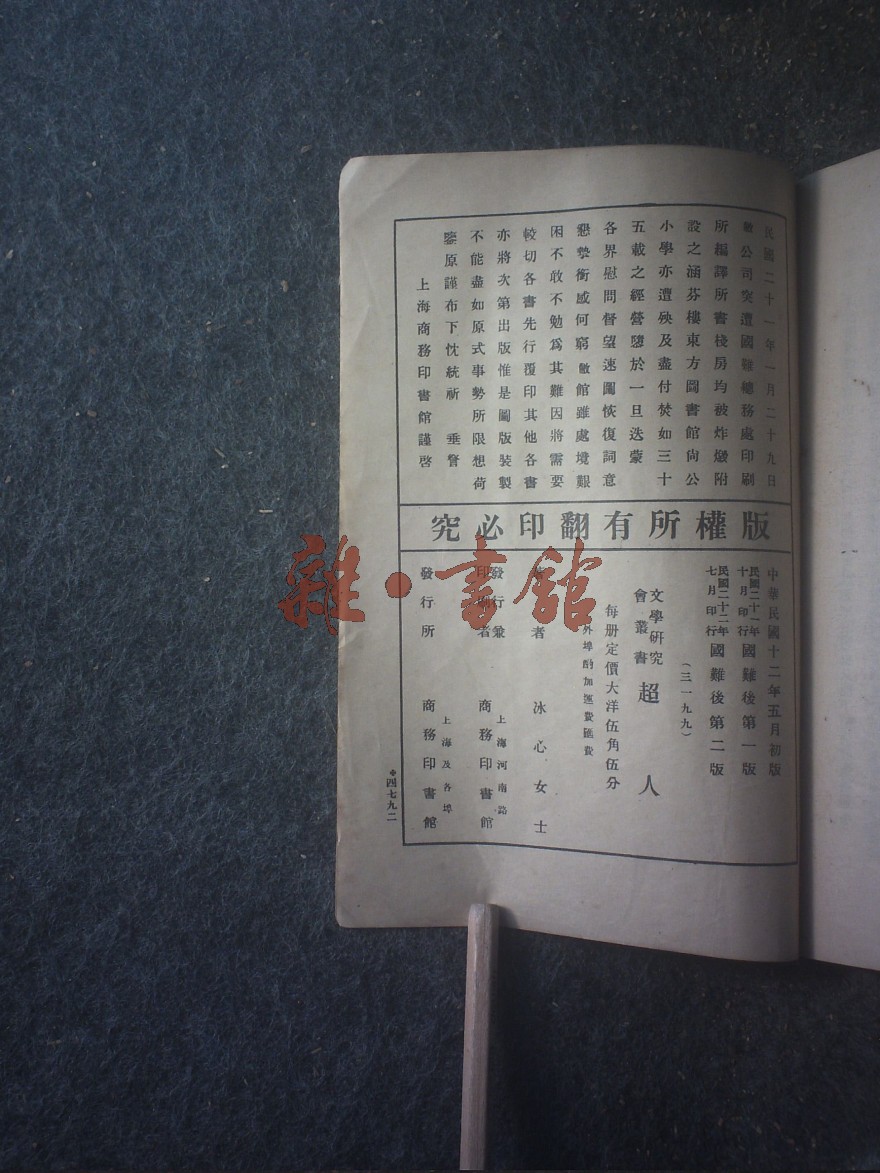 民國二十一年一月二十九日
敝公司突遭國難總務處印刷
所編譯所書棧房均被炸燬附
設之涵芬樓東方圖書館尙公
小學亦遭殃及盡付焚如三十
五載之經營隳於一旦迭蒙
各界慰問督望速圖恢復詞意
懇摯銜感何窮敝館雖處境艱
困不敢不勉爲其難因將需要
較切各書先行覆印其他各書
亦將次第出版惟是圖版裝製
不能盡如原式事勢所限想荷
鑒原謹布下忱統祈 垂詧
上海商務印書館謹啓
版權所有翻印必究
中華民國十二年五月初版
民國二十一年十月印行 國難後第一版
民國二十二年七月印行 國難後第二版
(三一九九)
文學研究會叢書 超人
每册定價大洋伍角伍分
外埠酌加運費匯費
著者 冰心女士
發行兼印刷者 上海河南路 商務印書館
發行所 上海及各埠 商務印書館
四七九二
雜·書館